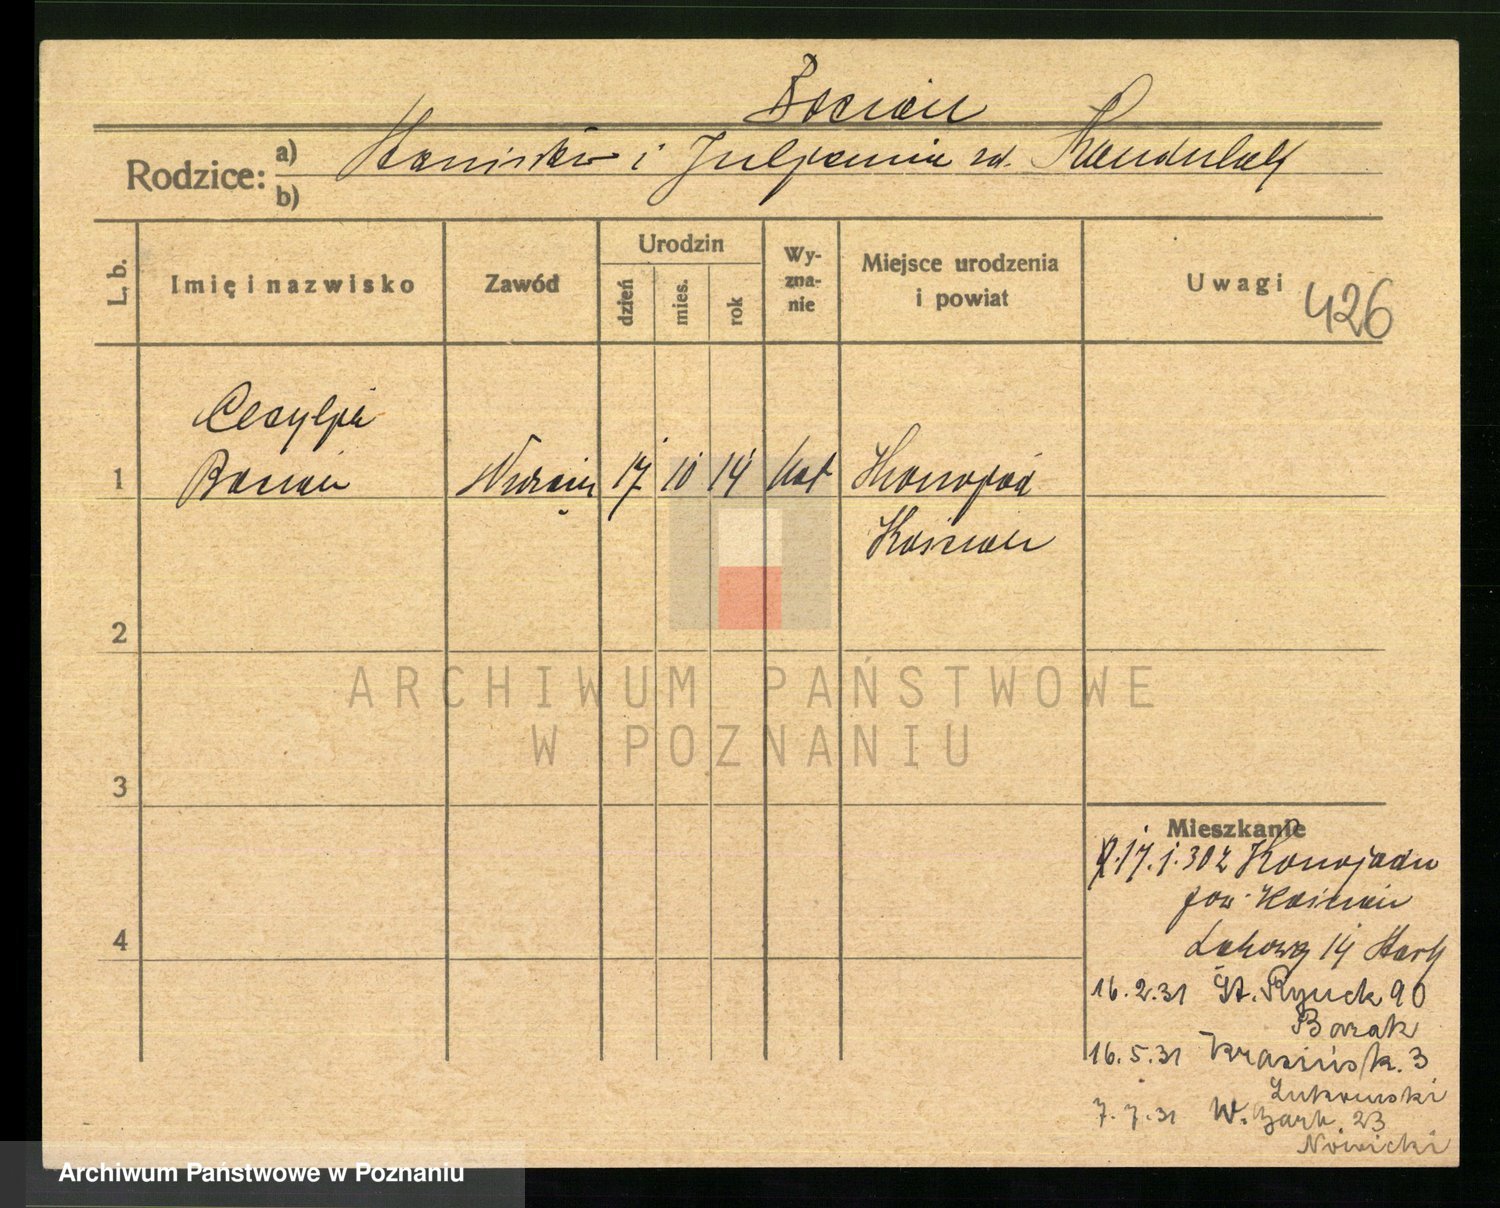 Bocian
Rodzice: a) Stanisław i Julianna zd. Kandulak
b)
L. b. Imię i nazwisko Zawód Urodzin dzień mies. rok Wy-zna-nie Miejsce urodzenia i powiat Uwagi 426
Cecylja
1 Bocian 17 10 14 kat Konojad
Kościan
2
3
4
ARCHIWUM PAŃSTWOWE
W POZNANIU
Mieszkanie
17.1.30 z Konojadu
pow. Kościan
Łąkowa 14
16.2.31 St. Rynek 90
Barak
16.5.31 Krasińsk. 3
7.7.31 W. Garb. 23
Nowicki
Archiwum Państwowe w Poznaniu